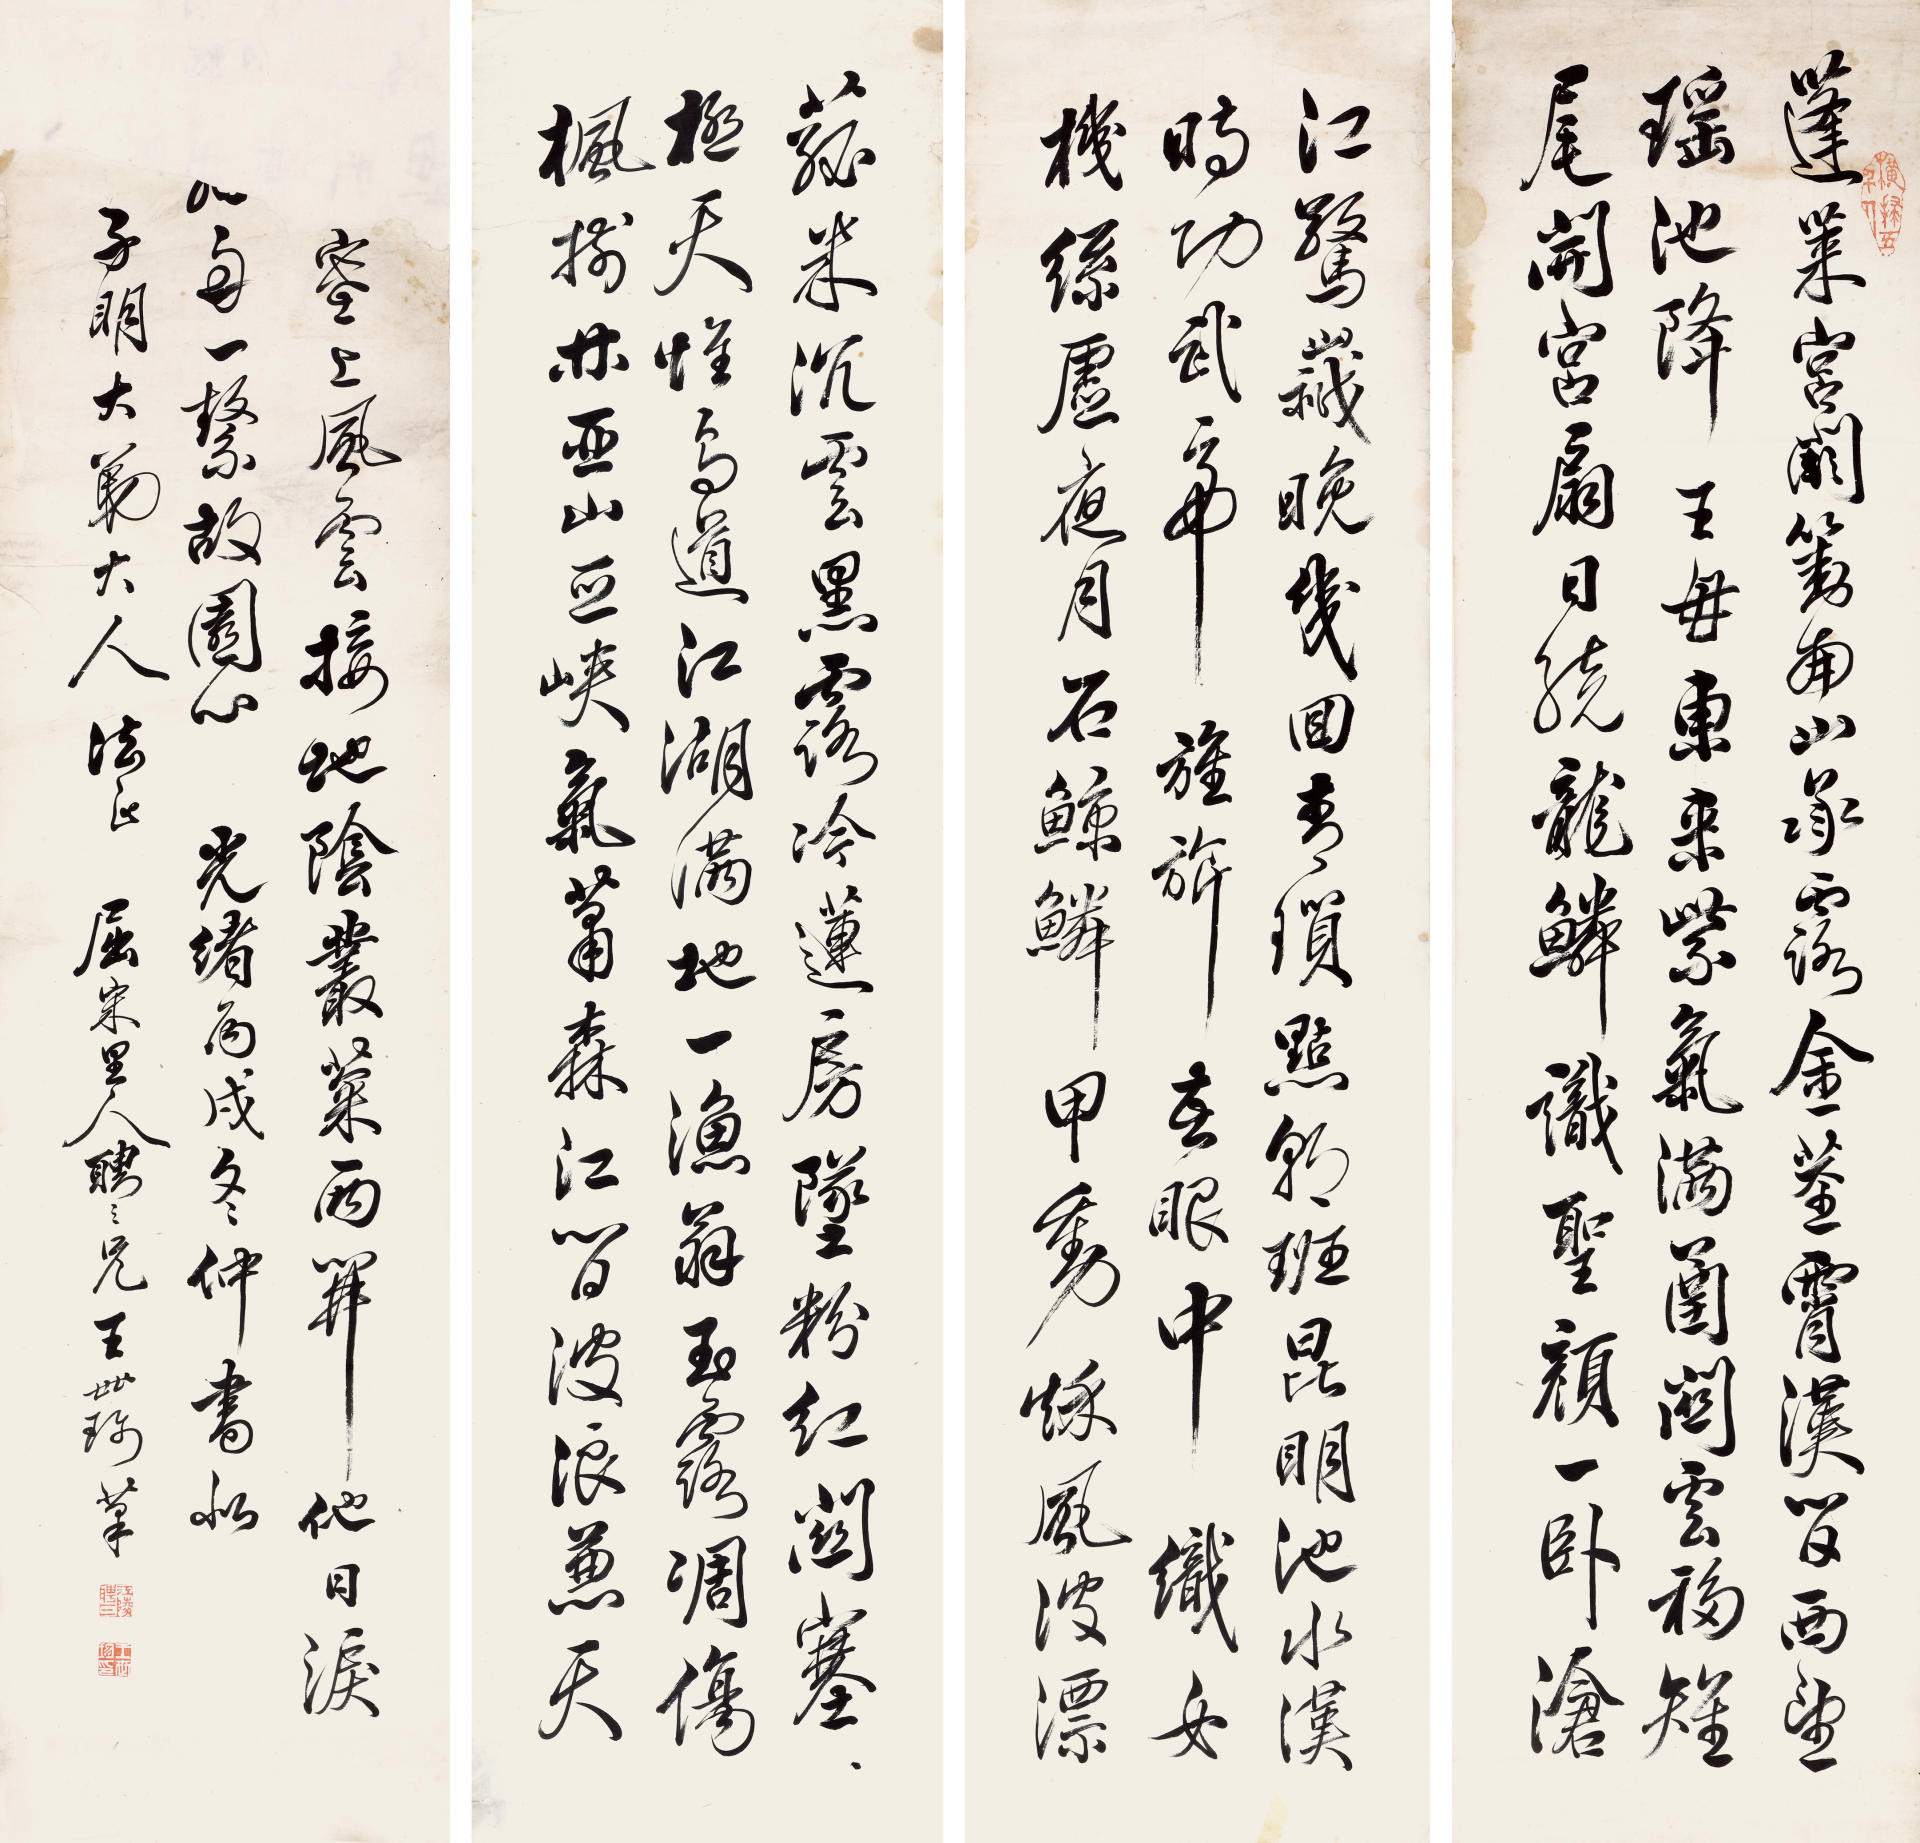 橫掃五
蓬萊宮闕對南山承露金莖霄漢間西望
瑤池降王母東來紫氣滿函關雲移雉
尾開宮扇日繞龍鱗識聖顏一卧滄
江驚歲晚幾回青瑣點朝班昆明池水漢
時功武帝旌旂在眼中織女
機絲虛夜月石鯨鱗甲動秋風波漂
菰米沉雲黑露冷蓮房墜粉紅關塞
極天惟鳥道江湖滿地一漁翁玉露凋傷
楓樹林巫山巫峽氣蕭森江間波浪兼天
塞上風雲接地陰叢菊兩開他日淚
孤舟一繫故園心 光緒丙戌冬仲書似
子明大大人法正 屈宋里人聘三王世草
江陵聘三